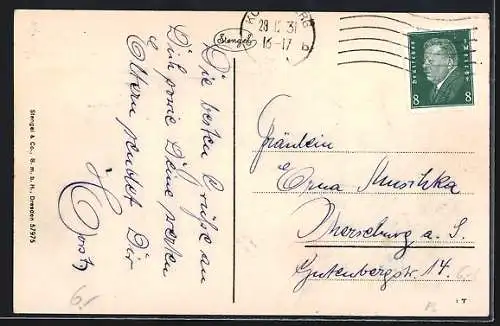 Stengel
29.12.31
16-17
b
Deutsches Reich
8 8
Die besten Grüße an
Dich sowie Deine werten
Eltern sendet Dir
Horst
Fräulein
Erna
Merseburg a. S.
Gutenbergstr. 14.
Stengel & Co., G. m. b. H., Dresden 57975
6.-